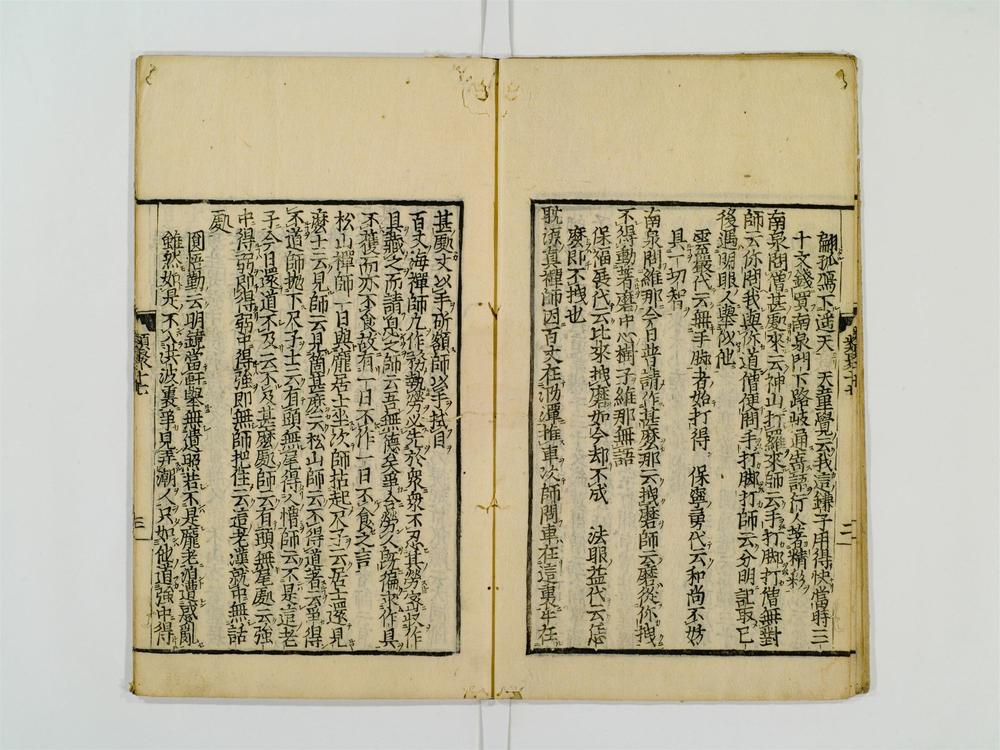 翩孤鴈下遼天　天童覺云我這鎌子用得快當時三
十文錢買南泉門下路岐通寄語行人著精彩
南泉問僧甚處來云神山打羅來師云手打脚打僧無對
師云你問我與你道僧便問手打脚打師云分明記取已
後遇明眼人舉似他
雲巖代云無手脚者始打得　保寧勇代云和尚不妨
具一切智
南泉問維那今日普請作甚麼那云拽磨師云磨從你拽
不得動著磨中心樹子維那無語
保福展代云比來拽磨如今却不成　法眼益代云恁
麼即不拽也
耽源真禪師因百丈在泐潭推車次師問車在這裏牛在
類聚十七
二
甚處丈以手斫額師以手拭目
百丈海禪師凡作務執勞必先於衆衆不忍其勞密收作
具藏之而請息之師云吾無德矣爭合勞人師徧求作具
不獲而亦不食故有一日不作一日不食之言
松山禪師一日與龐居士坐次師拈起尺子云居士還見
麼士云見師云見箇甚麼云松山師云不得道著云爭得
不道師抛下尺子士云有頭無尾得人憎師云不是這老
子今日還道不及云不及甚麼處師云有頭無尾處云強
中得弱即得弱中得強即無師把住云這老漢就中無話
處
圜悟勤云明鏡當軒舉無遺照若不是龐老洎遭惑亂
雖然如是不入洪波裏爭見弄潮人只如他道強中得
類聚十七
三